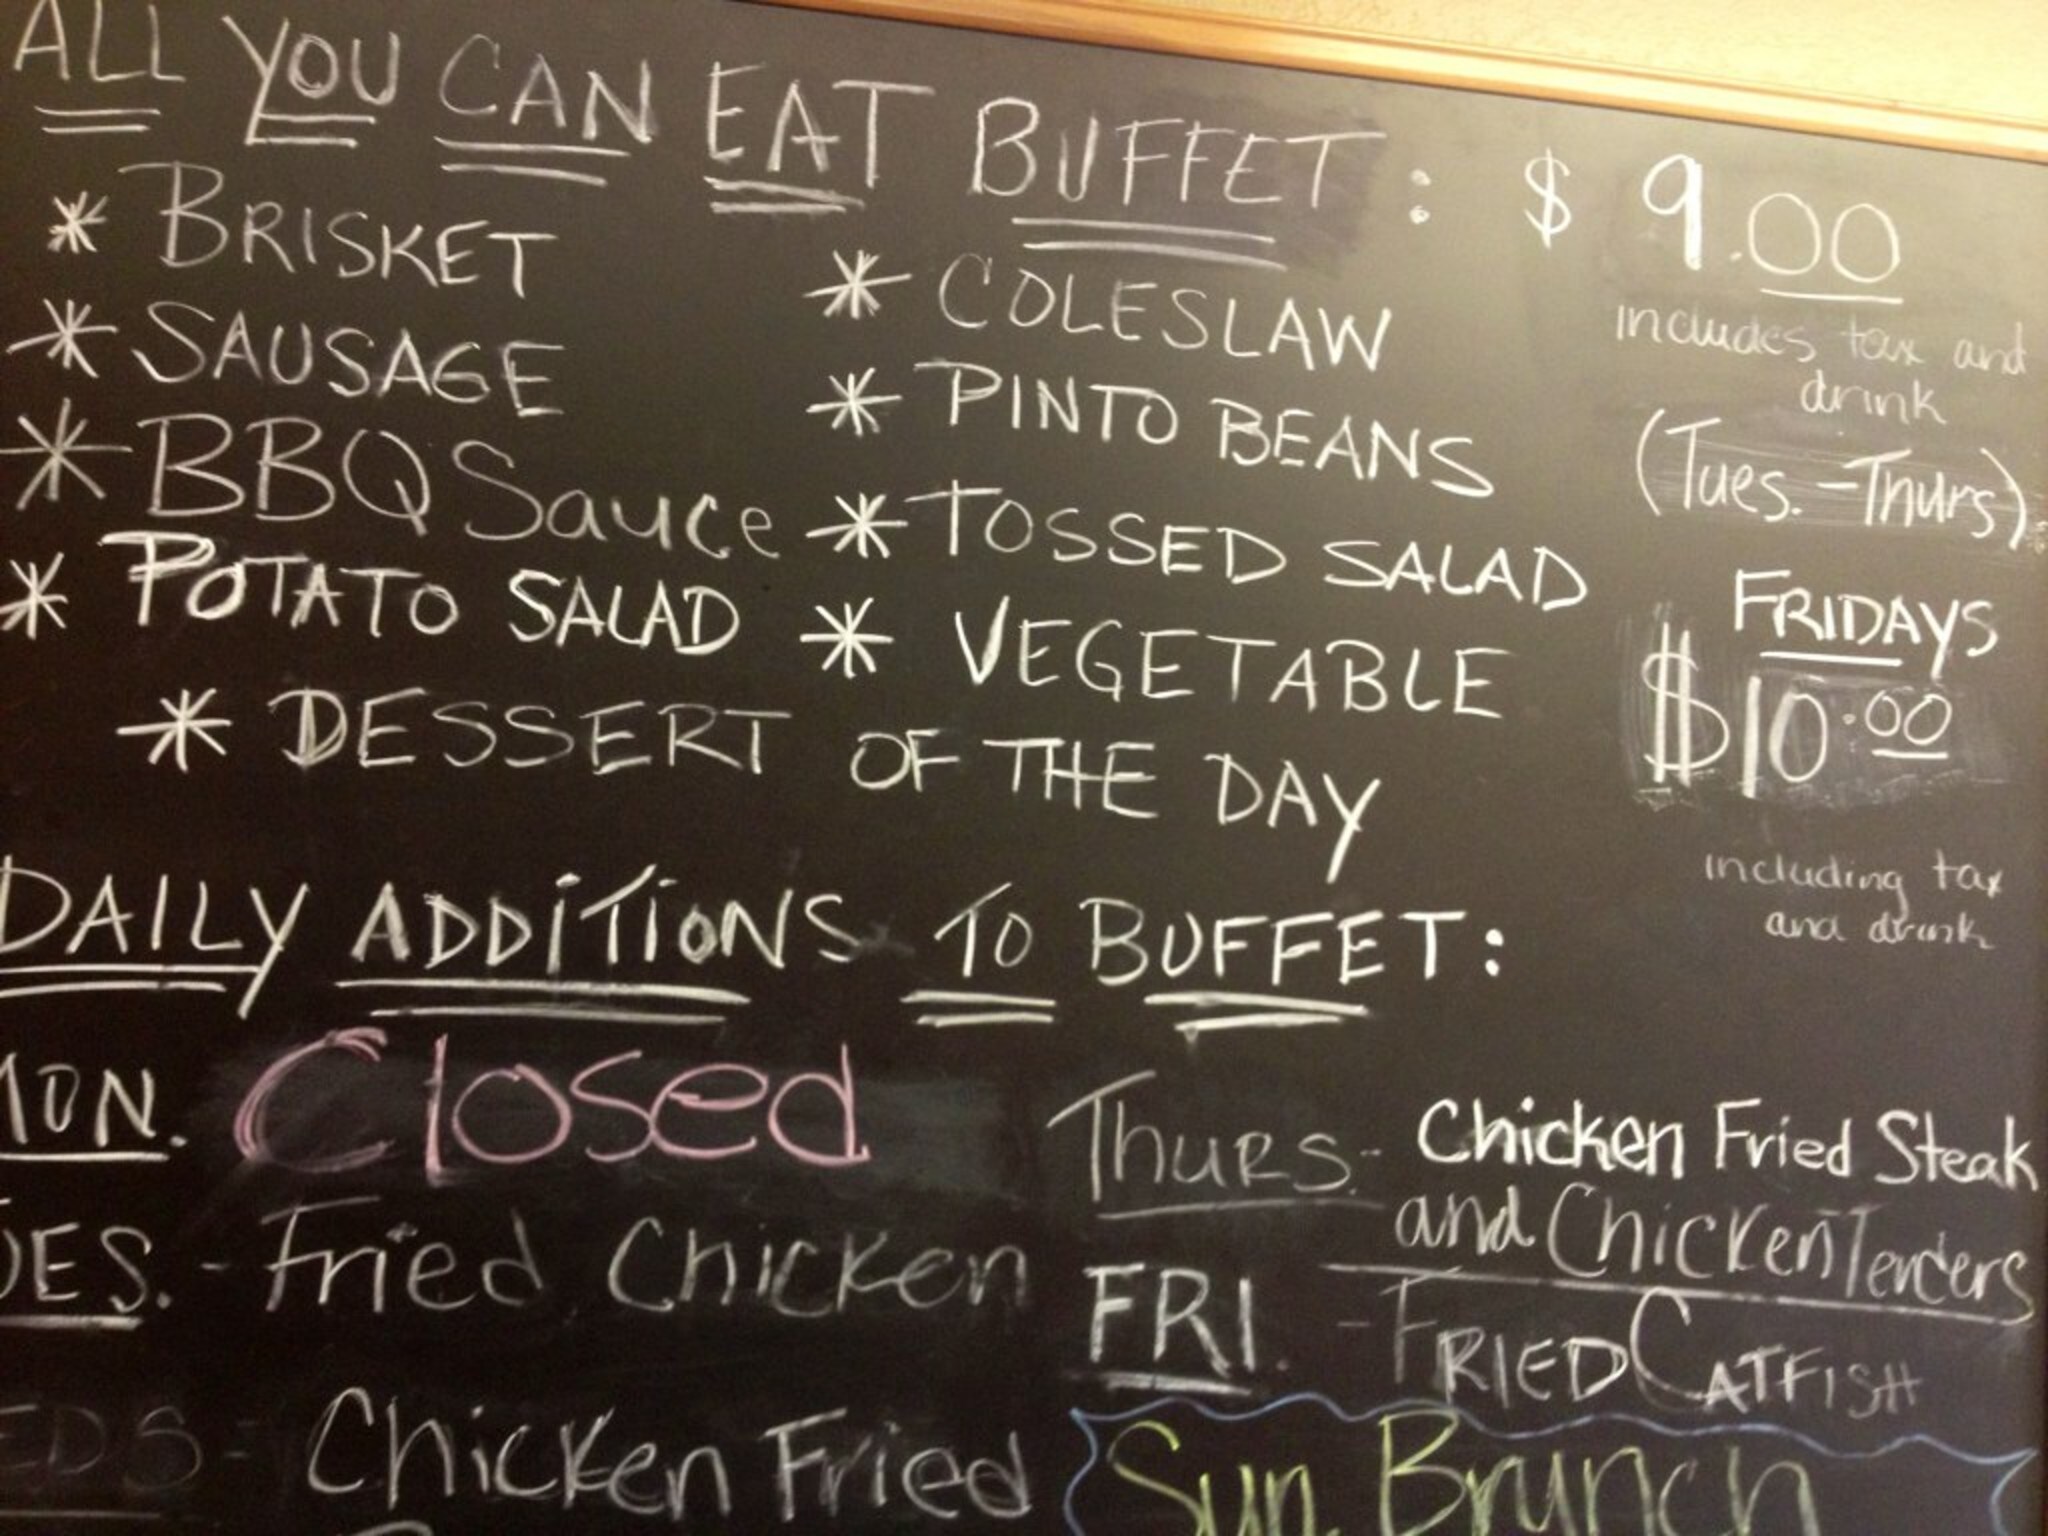 ALL YOU CAN EAT BUFFET: $9.00
includes tax and
drink
(Tues.-Thurs)
* BRISKET
* SAUSAGE
* BBQ Sauce
* POTATO SALAD
* COLESLAW
* PINTO BEANS
* TOSSED SALAD
* VEGETABLE
* DESSERT OF THE DAY
FRIDAYS
$10.00
including tax
and drink
DAILY ADDITIONS TO BUFFET:
MON. Closed
UES. - Fried Chicken
EDS - Chicken Fried
THURS. - Chicken Fried Steak
and Chicken Tenders
FRI. - FRIED CATFISH
Sun. Brunch